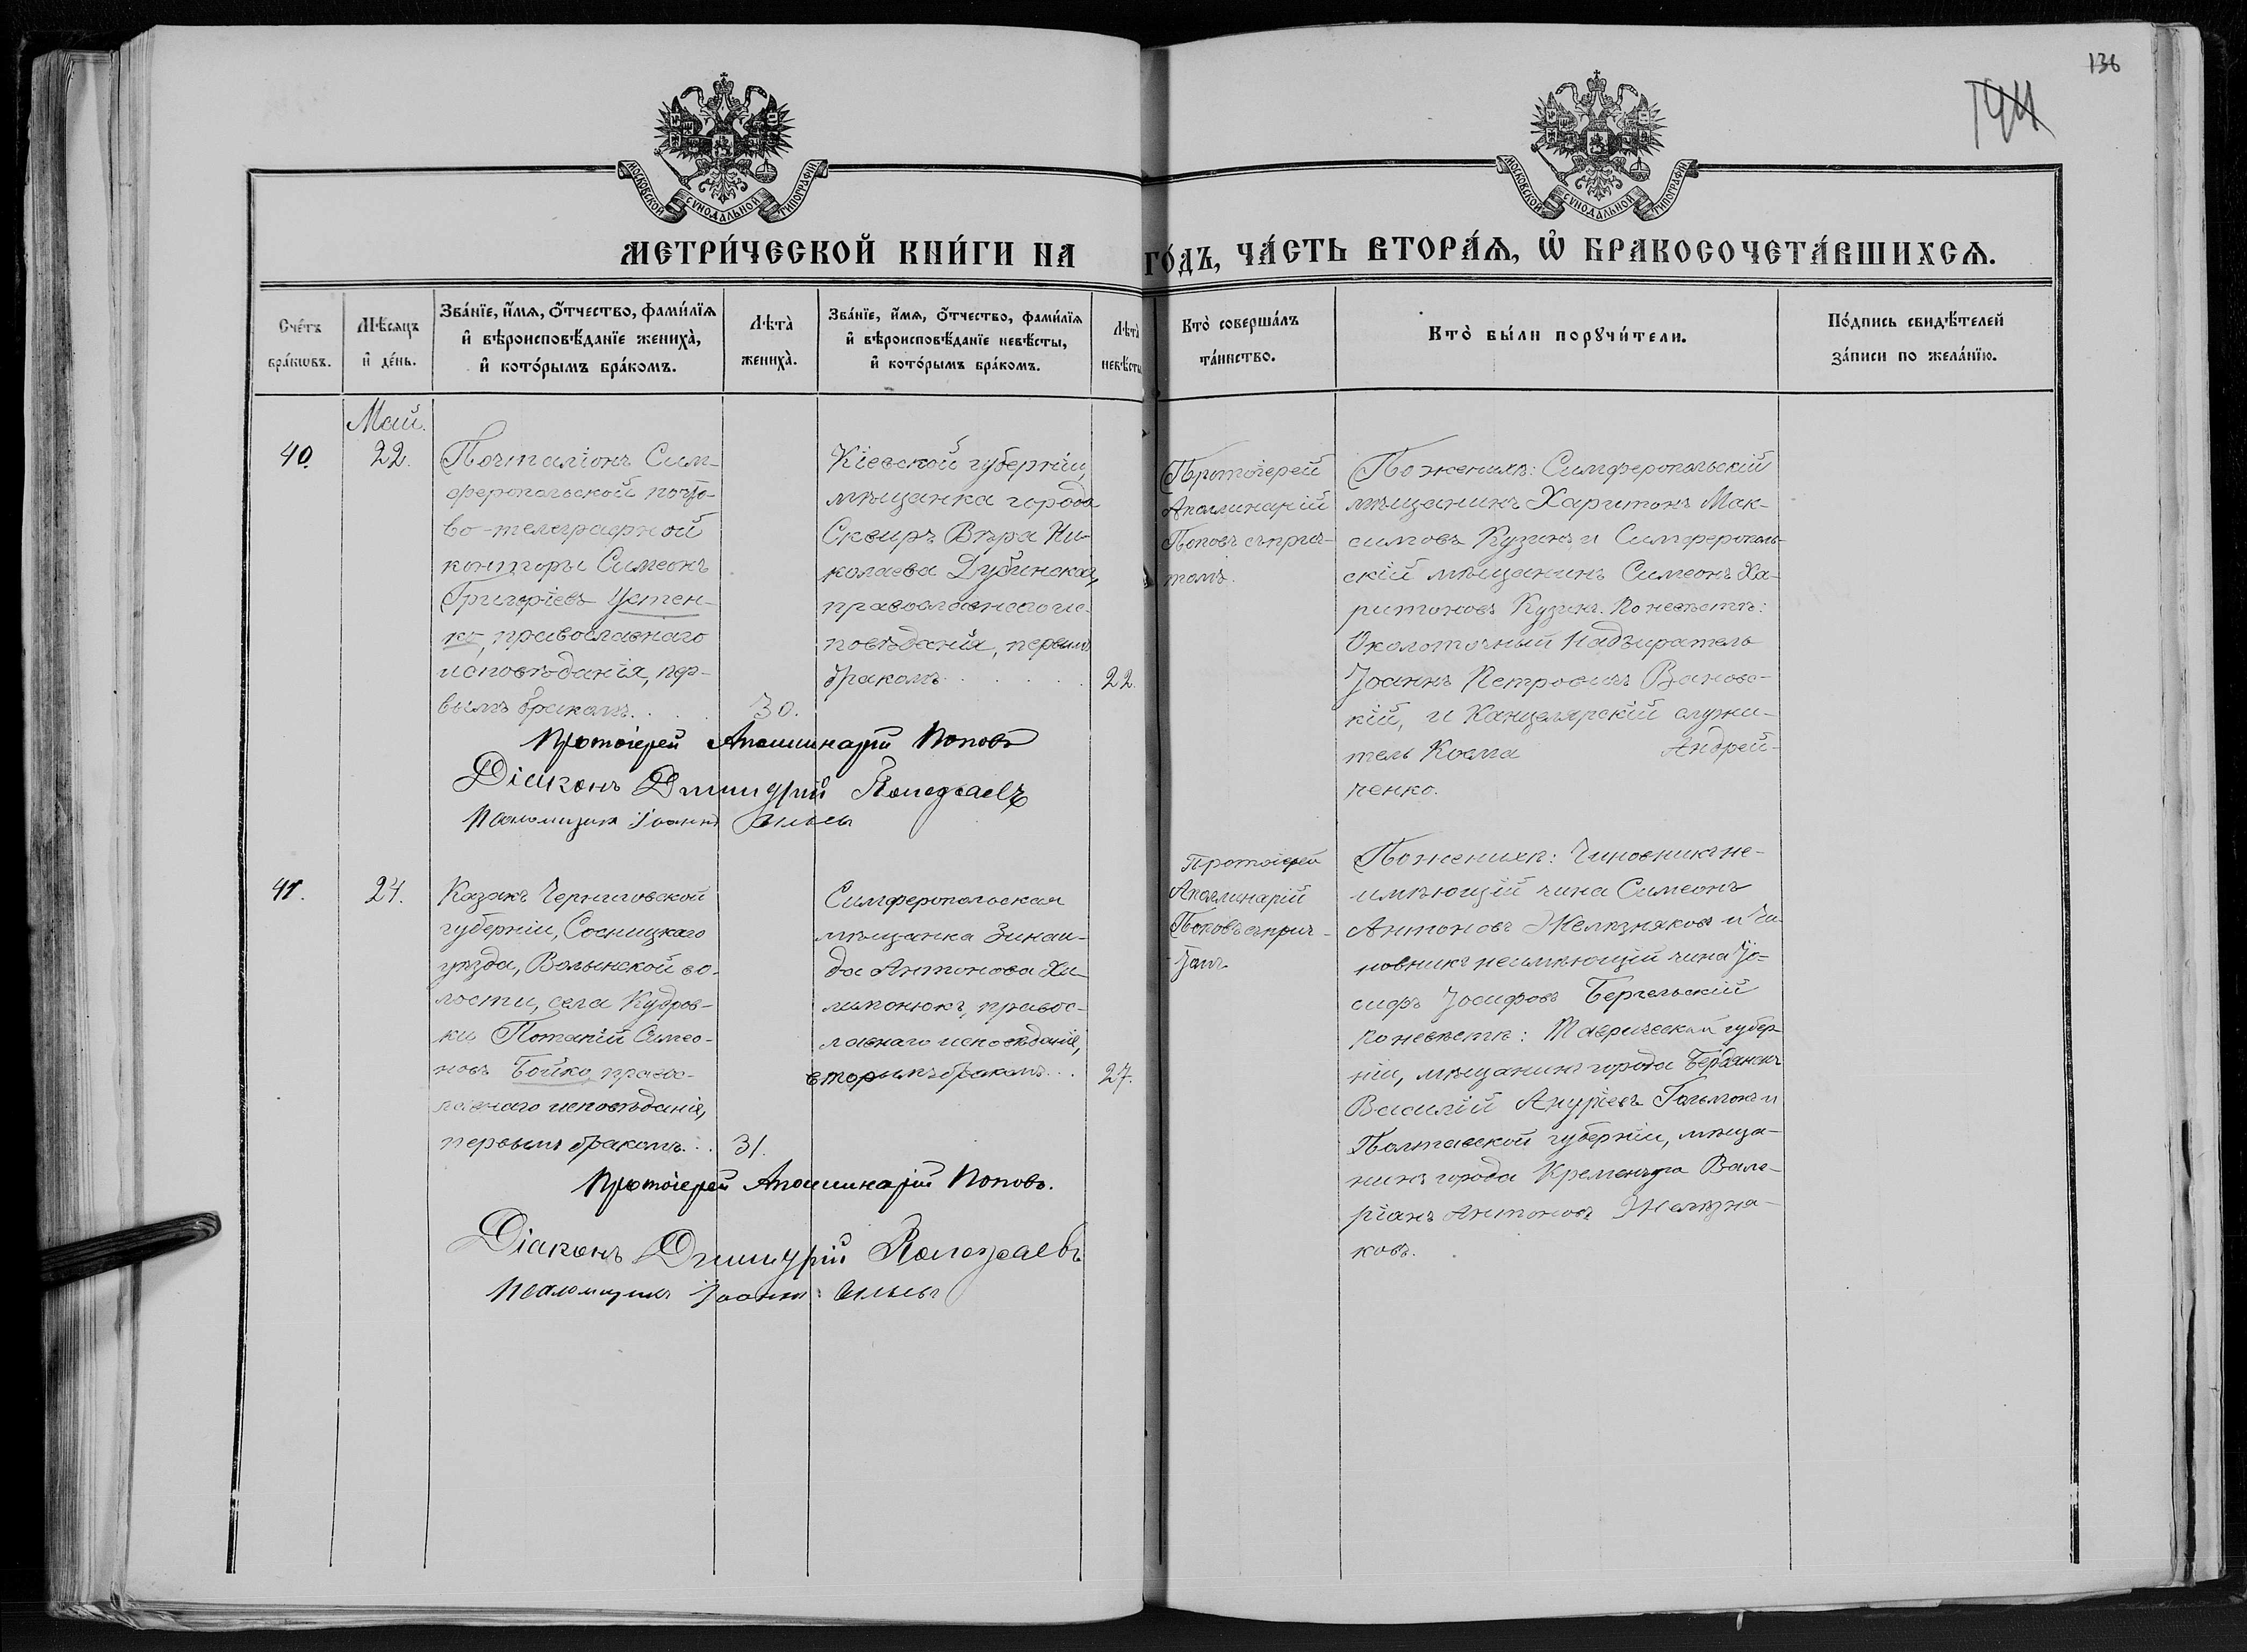 136
194
МОСКОВСКОЙ СѴНОДАЛЬНОЙ ТИПОГРАФІИ
МОСКОВСКОЙ СѴНОДАЛЬНОЙ ТИПОГРАФІИ
МЕТРИ́ЧЕСКОЙ КНИ́ГИ НА ГО́ДЪ, ЧА́СТЬ ВТОРА́Ѧ, Ѡ҆ БРАКОСОЧЕТА́ВШИХСѦ.
Сче́тъ
бра́кѡвъ.
Мѣ́сѧцъ
и҆ де́нь.
Зва́нїе, и҆́мѧ, ѻ҆́тчество, фами́лїѧ
и҆ вѣроисповѣ́данїе жениха̀,
и҆ кото́рымъ бра́комъ.
Лѣта̀
жениха̀.
Зва́нїе, и҆́мѧ, ѻ҆́тчество, фами́лїѧ
и҆ вѣроисповѣ́данїе невѣ́сты,
и҆ кото́рымъ бра́комъ.
Лѣта̀
невѣ́сты
Кто̀ соверша́лъ
та́инство.
Кто̀ бы́ли порꙋчи́тели.
По́дпись свидѣ́телей
за́писи по жела́нїю.
Май.
40.
22.
Почталіонъ Сим-
феропольской почто-
во-телеграфной
конторы Симеонъ
Григоріевъ Устен-
ко, православнаго
исповѣданія, пер-
вымъ бракомъ. . .
30.
Кіевской губерніи,
мѣщанка города
Сквиръ Вѣра Ни-
колаева Дубинская,
православнаго ис-
повѣданія, первымъ
бракомъ . . . .
22.
Протоіерей
Аполлинарій
Поповъ съ прич-
томъ.
По женихѣ: Симферопольскій
мѣщанинъ Харитонъ Мак-
симовъ Кузинъ и Симферополь-
скій мѣщанинъ Симеонъ Ха-
ритоновъ Кузинъ. По невѣстѣ:
Околоточный Надзиратель
Іоаннъ Петровичъ Вановс-
кій, и Канцелярскій служи-
тель Косма Андрей-
ченко.
Протоіерей Аполлинарій Поповъ
Діаконъ Димитрій
Псаломщикъ Іоаннъ
41.
24.
Казакъ Черниговской
губерніи, Сосницкаго
уѣзда, Волынской во-
лости, села Кудров-
ки Потапій Симео-
новъ Бойко, правос-
лавнаго исповѣданія,
первымъ бракомъ. . .
31.
Симферопольская
мѣщанка Зинаи-
да Антонова Хи-
лимонюкъ, правос-
лавнаго исповѣданія,
вторымъ бракомъ. . .
27.
Протоіерей
Аполлинарій
Поповъ съ прич-
томъ
По женихѣ: Чиновникъ не-
имѣющій чина Симеонъ
Антоновъ Желѣзняковъ и Чи-
новникъ неимѣющій чина Іо-
сифъ Іосифовъ Бергельскій
По невѣстѣ: Таврической губер-
ніи, мѣщанинъ города Бердянскъ
Василій и
Полтавской губерніи, мѣща-
нинъ города Кременчуга Вале-
ріанъ Антоновъ Желѣзня-
ковъ.
Протоіерей Аполлинарій Поповъ.
Діаконъ Димитрій
Псаломщикъ Іоаннъ